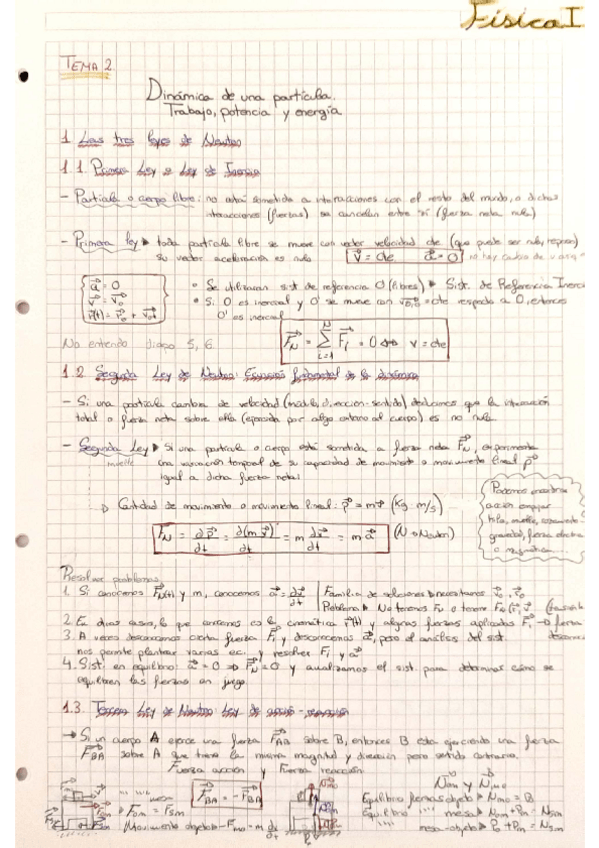 Física I
TEMA 2.
Dinámica de una partícula.
Trabajo, potencia y energía
1. Las tres leyes de Newton
1.1. Primera Ley o Ley de Inercia
- Partícula o cuerpo libre: no está sometida a interacciones con el resto del mundo, o dichas
interacciones (fuerzas) se cancelan entre sí (fuerza neta nula)
- Primera ley ▸ toda partícula libre se mueve con vector velocidad cte (que puede ser nulo, reposo)
Su vector aceleración es nulo v⃗ = cte a⃗ = 0 no hay cambio de v
a⃗ = 0
v⃗ = v⃗₀
r⃗(t) = r⃗₀ + v⃗₀t
• Se utilizaran sist. de referencia O (libres) ▸ Sist. de Referencia Inerc
• Si O es inercial y O' se mueve con = cte respecto a O, entonces
O' es inercial
F⃗N = Σ F⃗i = 0 ⇔ v = cte
No entiendo diapo 5, 6.
1.2. Segunda Ley de Newton: Ecuación fundamental de la dinámica
- Si una partícula cambia de velocidad (módulo, dirección, sentido) deducimos que la interacción
total o fuerza neta sobre ella (ejercida por algo externo al cuerpo) es no nula.
- Segunda Ley ▸ Si una partícula o cuerpo está sometida a fuerza neta F⃗N, experimenta
muelle una variación temporal de su capacidad de movimiento o movimiento lineal p⃗
igual a dicha fuerza neta:
▷ Cantidad de movimiento o movimiento lineal: p⃗ = mv⃗ (Kg·m/s)
F⃗N = ∂p⃗/∂t = ∂(mv⃗)/∂t = m ∂v⃗/∂t = ma⃗ (N → Newton)
Podemos
acción empujar
hilo, muelle, rozamiento
gravedad, fuerza eléctrica
o magnética...
Resolver problemas
1. Si conocemos F⃗N(t) y m, conocemos a⃗ = ∂v⃗/∂t
Familia de soluciones ▸ necesitamos v⃗₀, r⃗₀
Problema ▸ No tenemos FN o tenemos
2. En otros casos, lo que conocemos es la cinemática r⃗(t) y algunas fuerzas aplicadas F⃗i → fuerza
3. A veces desconocemos cierta fuerza F⃗i y desconocemos a⃗, pero el análisis del sist.
nos permite plantear varias ec. y resolver Fi y a⃗
4. Sist. en equilibrio: a⃗ = 0 ⇒ F⃗N = 0 y analizamos el sist. para determinar cómo se
equilibran las fuerzas en juego.
1.3. Tercera Ley de Newton: Ley de acción-reacción
→ Si un cuerpo A ejerce una fuerza F⃗AB sobre B, entonces B está ejerciendo una fuerza
F⃗BA sobre A que tiene la misma magnitud y dirección pero sentido contrario.
Fuerza acción y Fuerza reacción
F⃗BA = -F⃗AB
mesa
Nom y Nmo
Equilibrio fuerzas objeto ▸ Nmo = P₀
Equilibrio mesa ▸
mesa-objeto ▸ P₀ + Pm = Nsm
Fom = Fsm
Movimiento objeto